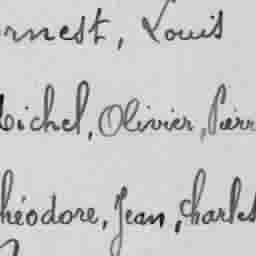 rnest, Louis
Michel, Olivier, Pierr
héodore, Jean, Charles